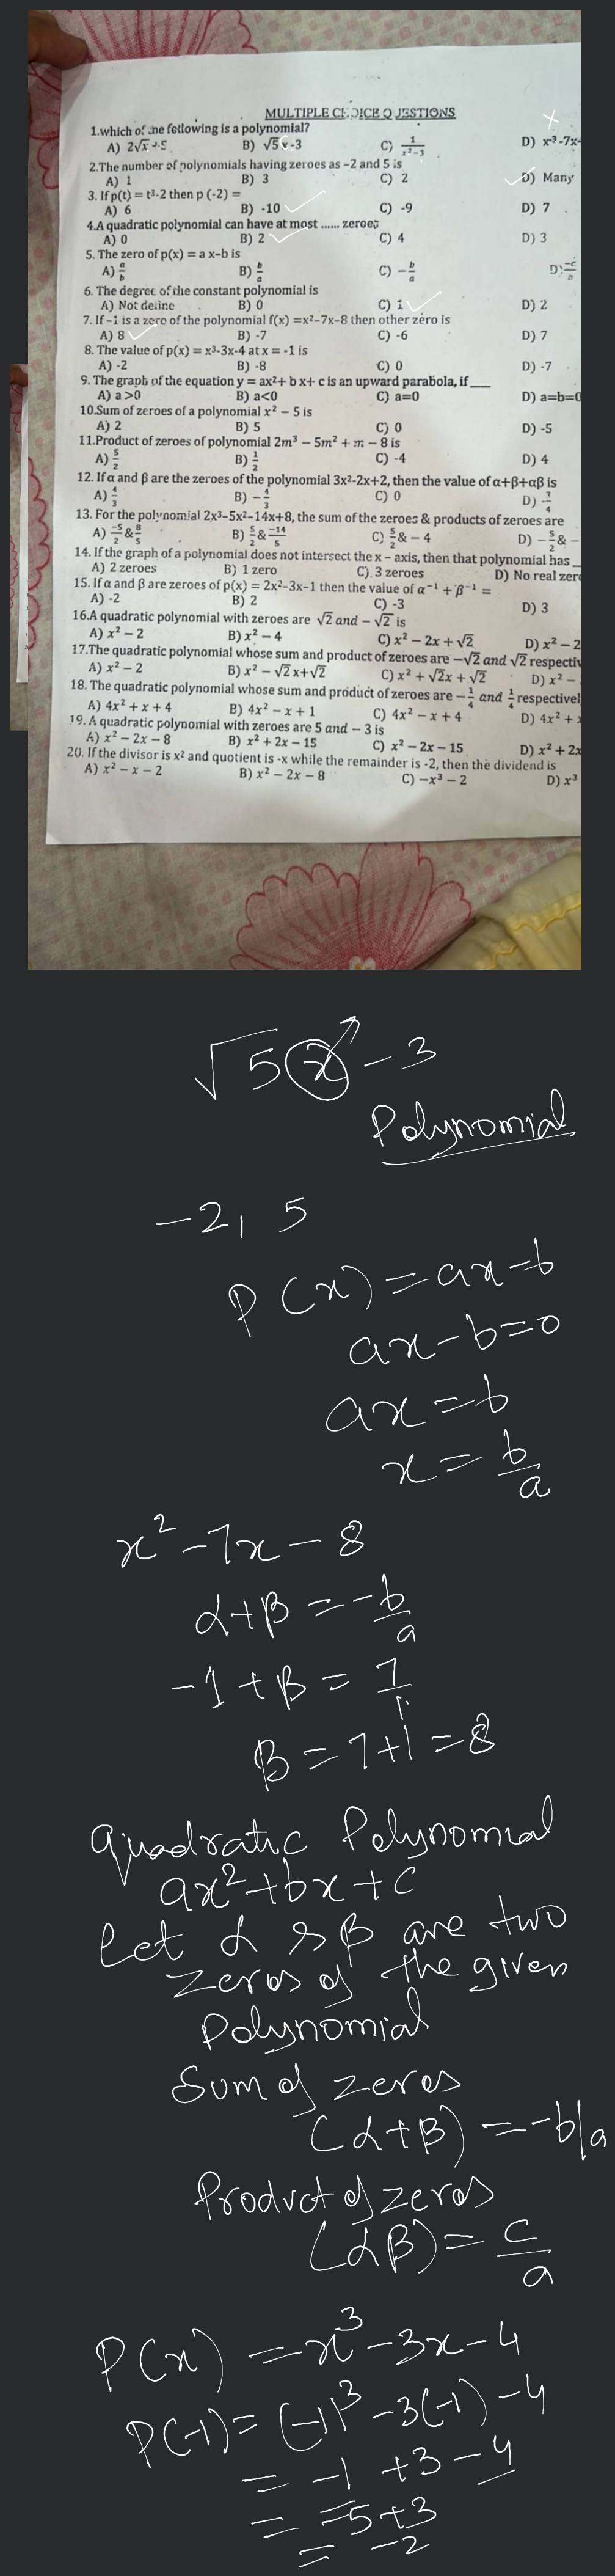 MULTIPLE CHOICE QUESTIONS
1.which of the following is a polynomial?
A) 2√x +5 B) √5x-3 C) 1/(x²-3) D) x³-7x-
2.The number of polynomials having zeroes as -2 and 5 is
A) 1 B) 3 C) 2 D) Many
3. If p(t) = t³-2 then p (-2) =
A) 6 B) -10 C) -9 D) 7
4.A quadratic polynomial can have at most ...... zeroes
A) 0 B) 2 C) 4 D) 3
5. The zero of p(x) = a x-b is
A) a/b B) b/a C) -b/a D) -c/b
6. The degree of the constant polynomial is
A) Not define B) 0 C) 1 D) 2
7. If -1 is a zero of the polynomial f(x) =x²-7x-8 then other zero is
A) 8 B) -7 C) -6 D) 7
8. The value of p(x) = x³-3x-4 at x = -1 is
A) -2 B) -8 C) 0 D) -7
9. The graph of the equation y = ax²+ b x+ c is an upward parabola, if ___
A) a >0 B) a<0 C) a=0 D) a=b=0
10.Sum of zeroes of a polynomial x² – 5 is
A) 2 B) 5 C) 0 D) -5
11.Product of zeroes of polynomial 2m³ – 5m² + m – 8 is
A) 5/2 B) 1/2 C) -4 D) 4
12. If α and β are the zeroes of the polynomial 3x²-2x+2, then the value of α+β+αβ is
A) 4/3 B) -4/3 C) 0 D)
13. For the polynomial 2x³-5x²-14x+8, the sum of the zeroes & products of zeroes are
A) -5/2 & 8/5 B) 5/2 & -14/5 C) 5/2 & – 4 D) -5/2 & -
14. If the graph of a polynomial does not intersect the x – axis, then that polynomial has _
A) 2 zeroes B) 1 zero C). 3 zeroes D) No real zer
15. If α and β are zeroes of p(x) = 2x²-3x-1 then the value of α⁻¹ + β⁻¹ =
A) -2 B) 2 C) -3 D) 3
16.A quadratic polynomial with zeroes are √2 and – √2 is
A) x² – 2 B) x² – 4 C) x² – 2x + √2 D) x² – 2
17.The quadratic polynomial whose sum and product of zeroes are –√2 and √2 respectiv
A) x² – 2 B) x² – √2 x+√2 C) x² + √2x + √2 D) x² –
18. The quadratic polynomial whose sum and product of zeroes are –1/4 and 1/4 respectivel
A) 4x² + x + 4 B) 4x² – x + 1 C) 4x² – x + 4 D) 4x² + x
19. A quadratic polynomial with zeroes are 5 and – 3 is
A) x² – 2x – 8 B) x² + 2x – 15 C) x² – 2x – 15 D) x² + 2x
20. If the divisor is x² and quotient is -x while the remainder is -2, then the dividend is
A) x² – x – 2 B) x² – 2x – 8 C) –x³ – 2 D) x³
√5x - 3
Polynomial
-2, 5
P(x) = ax-b
ax-b=0
ax = b
x = b/a
x²-7x-8
α+β = -b/a
-1+β = 7/1
β = 7+1 = 8
quadratic Polynomial
ax²+bx+c
let α & β are two
zeros of the given
Polynomial
Sum of zeros
(α+β) = -b/a
Product of zeros
(αβ) = c/a
P(x) = x³-3x-4
P(-1) = (-1)³-3(-1)-4
= -1 +3 -4
= -5+3
= -2